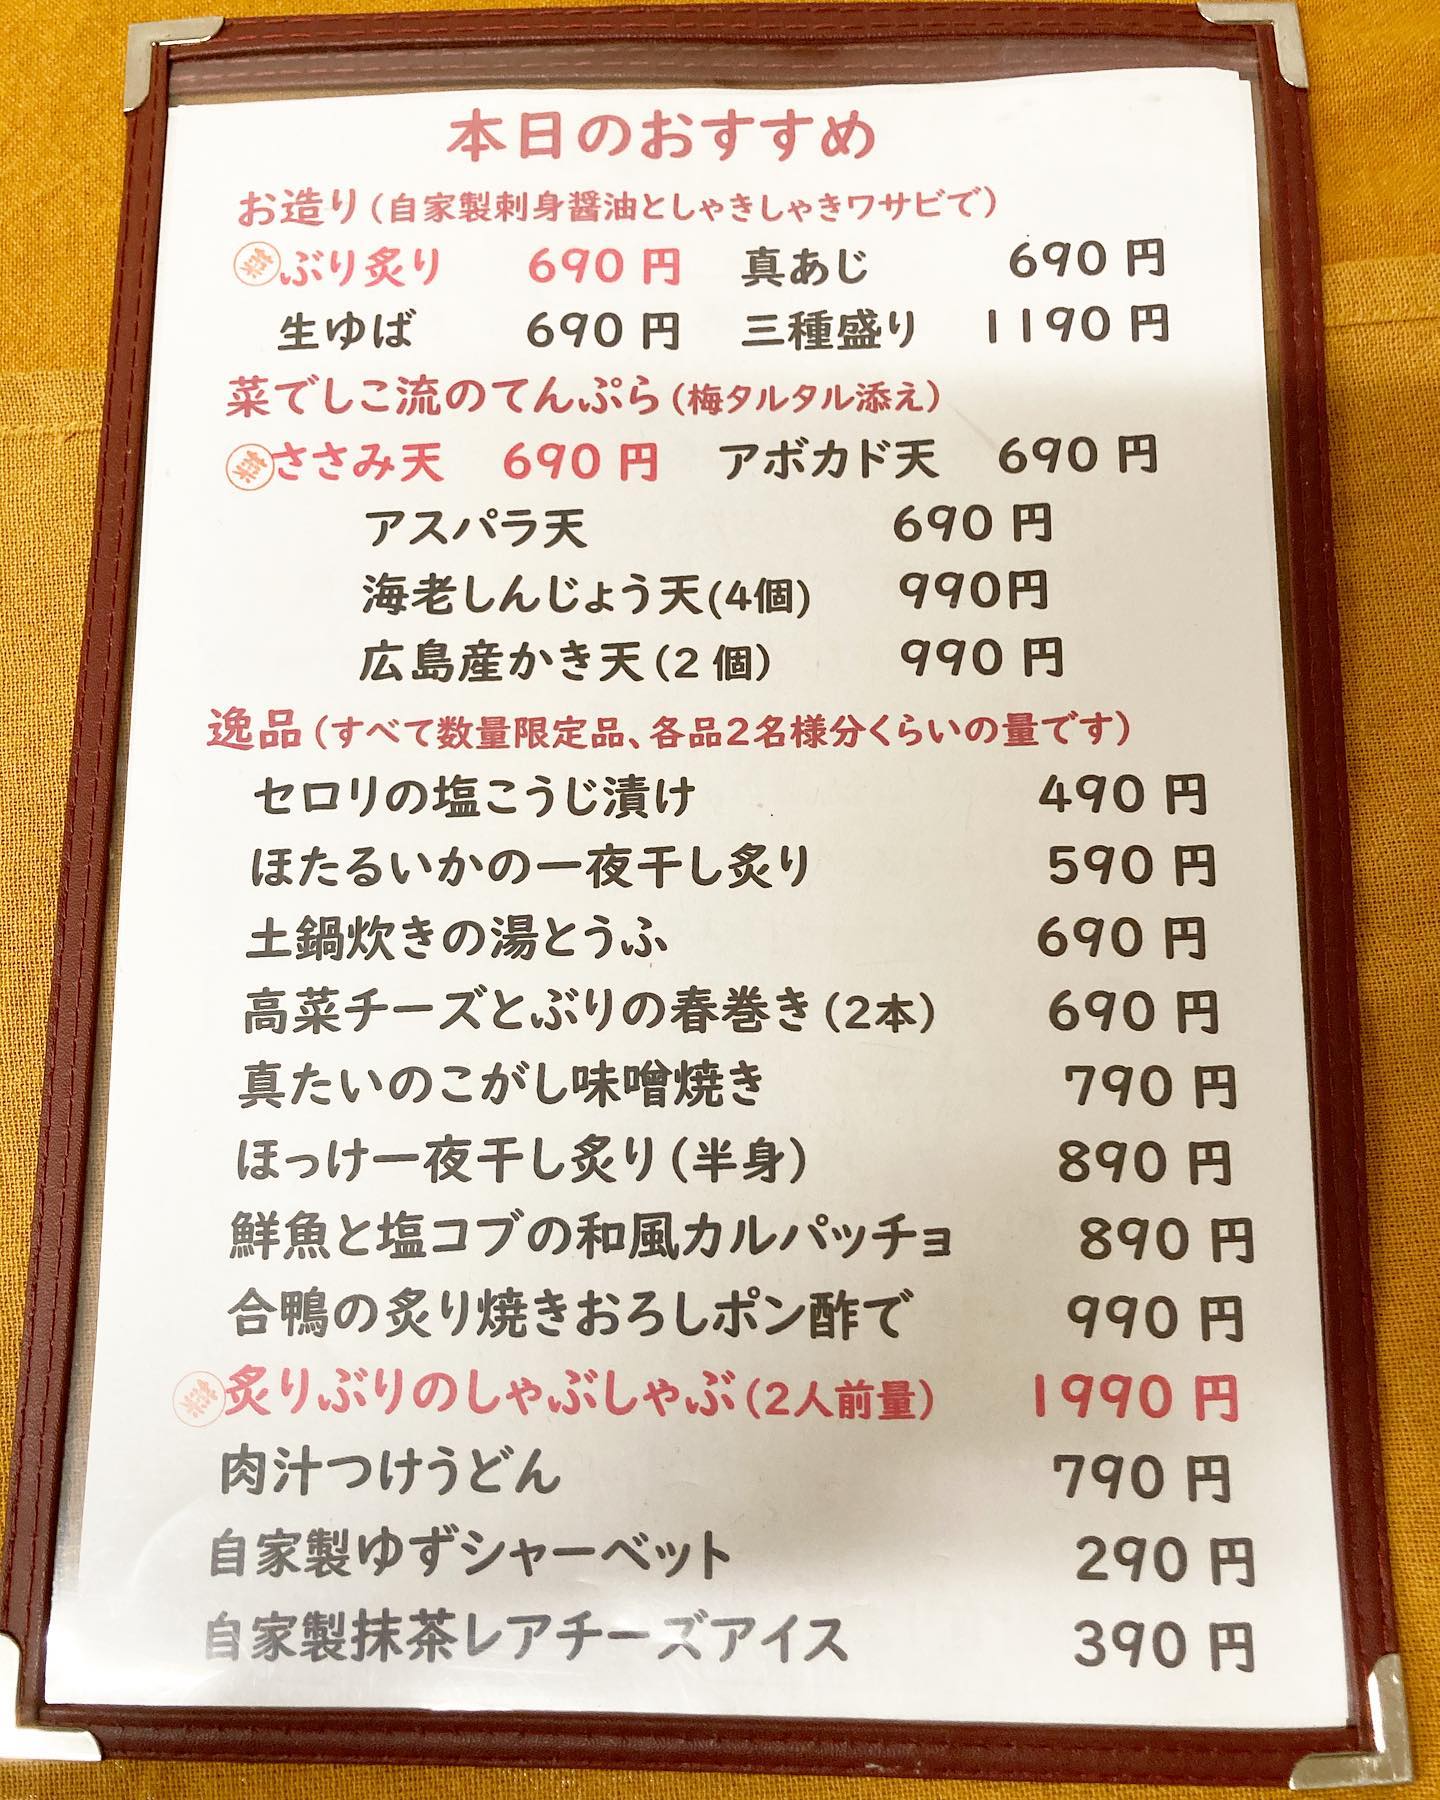 本日のおすすめ
お造り(自家製刺身醤油としゃきしゃきワサビで)
ぶり炙り 690円 真あじ 690円
生ゆば 690円 三種盛り 1190円
菜でしこ流のてんぷら(梅タルタル添え)
ささみ天 690円 アボカド天 690円
アスパラ天 690円
海老しんじょう天(4個) 990円
広島産かき天(2個) 990円
逸品(すべて数量限定品、各品2名様分くらいの量です)
セロリの塩こうじ漬け 490円
ほたるいかの一夜干し炙り 590円
土鍋炊きの湯とうふ 690円
高菜チーズとぶりの春巻き(2本) 690円
真たいのこがし味噌焼き 790円
ほっけ一夜干し炙り(半身) 890円
鮮魚と塩コブの和風カルパッチョ 890円
合鴨の炙り焼きおろしポン酢で 990円
炙りぶりのしゃぶしゃぶ(2人前量) 1990円
肉汁つけうどん 790円
自家製ゆずシャーベット 290円
自家製抹茶レアチーズアイス 390円